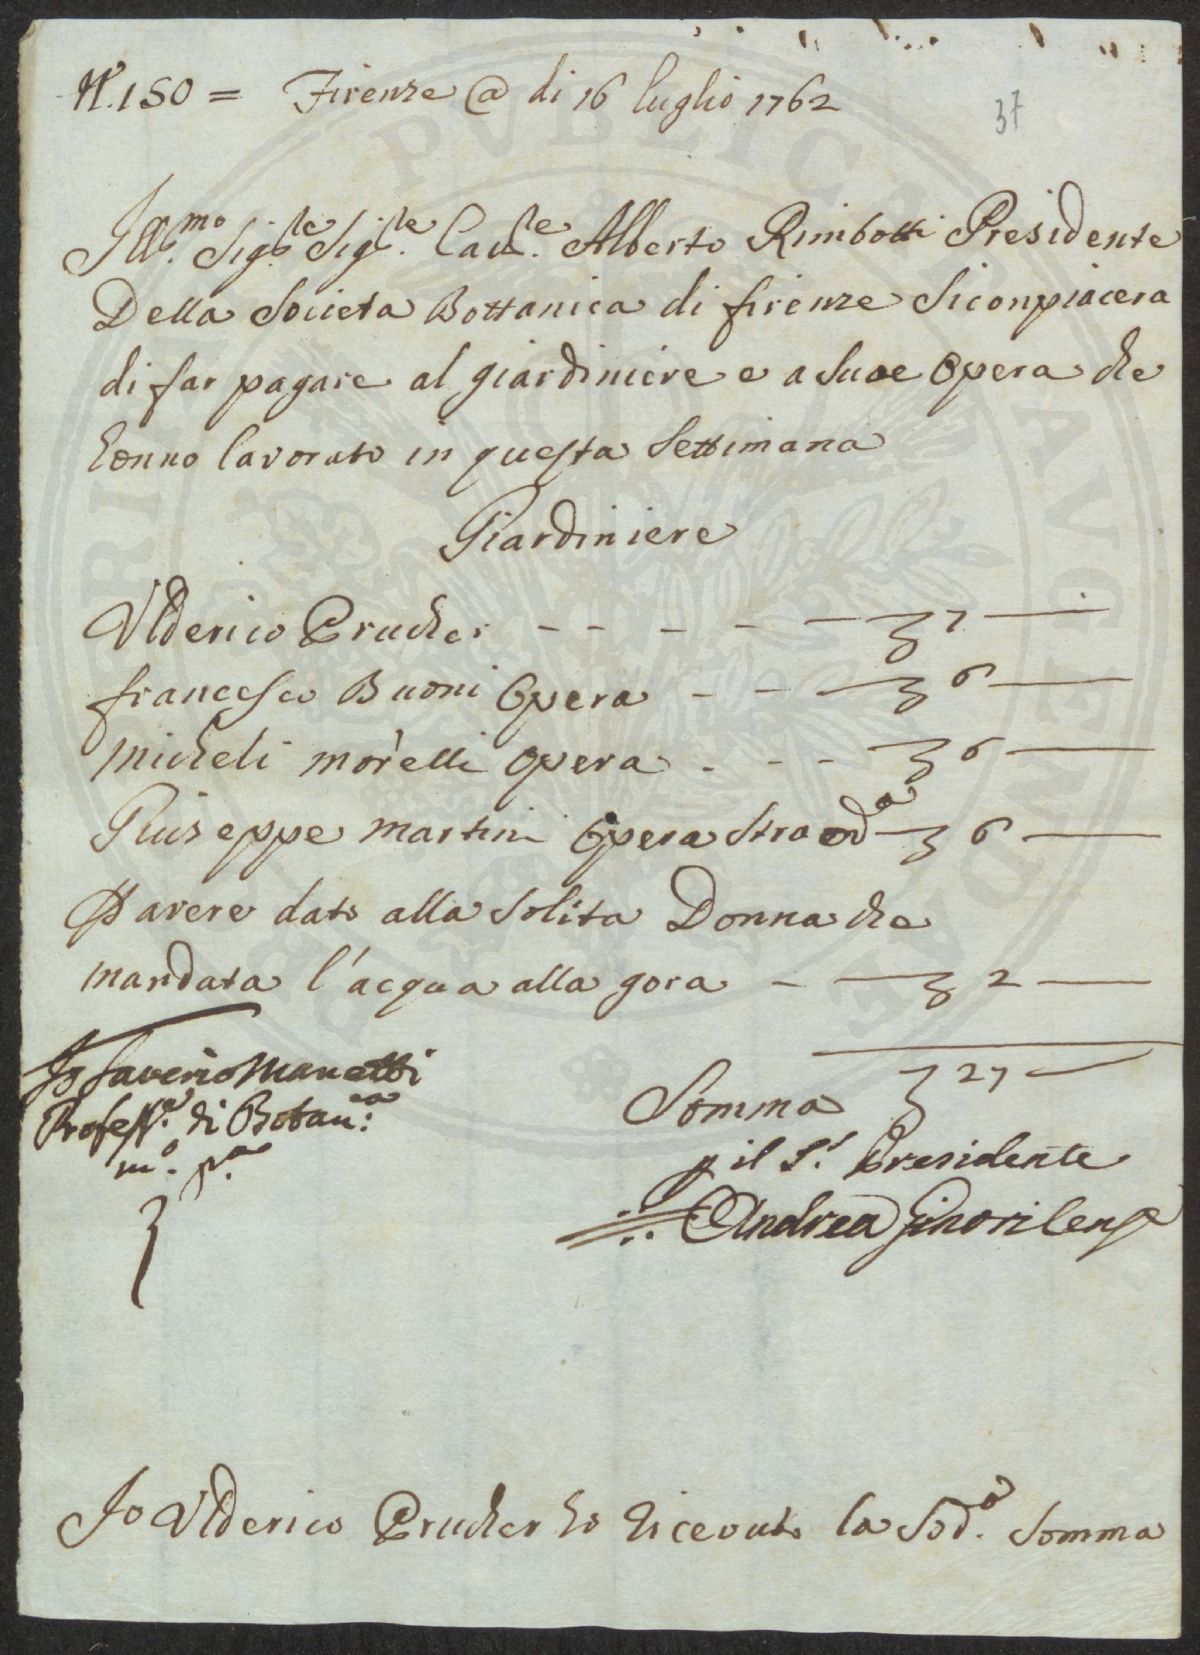 N. 150 = Firenze @ di 16 luglio 1762
37
Ill.mo Sig.re Sig.re Cav.re Alberto Rimbotti Presidente
Della Societa Bottanica di firenze Siconpiacera
di far pagare al giardiniere e a Sue Opera che
hanno lavorato in questa Settimana
Giardiniere
Vlderico Prucher - - - - - 7 -
francesco Buoni Opera - - - 6 -
Micheli morelli opera - - - 6 -
Giuseppe martini Opera Straord.a - 6 -
P avere dato alla Solita Donna che
mandata l'acqua alla gora - - 2 -
Somma 27 -
Io Saverio Manetti
Profess.e di Botan.ca
m.o p.a
p il S.r Presidente
Andrea Ginori
Io Vlderico Prucher ho ricevuto la Sod.a Somma